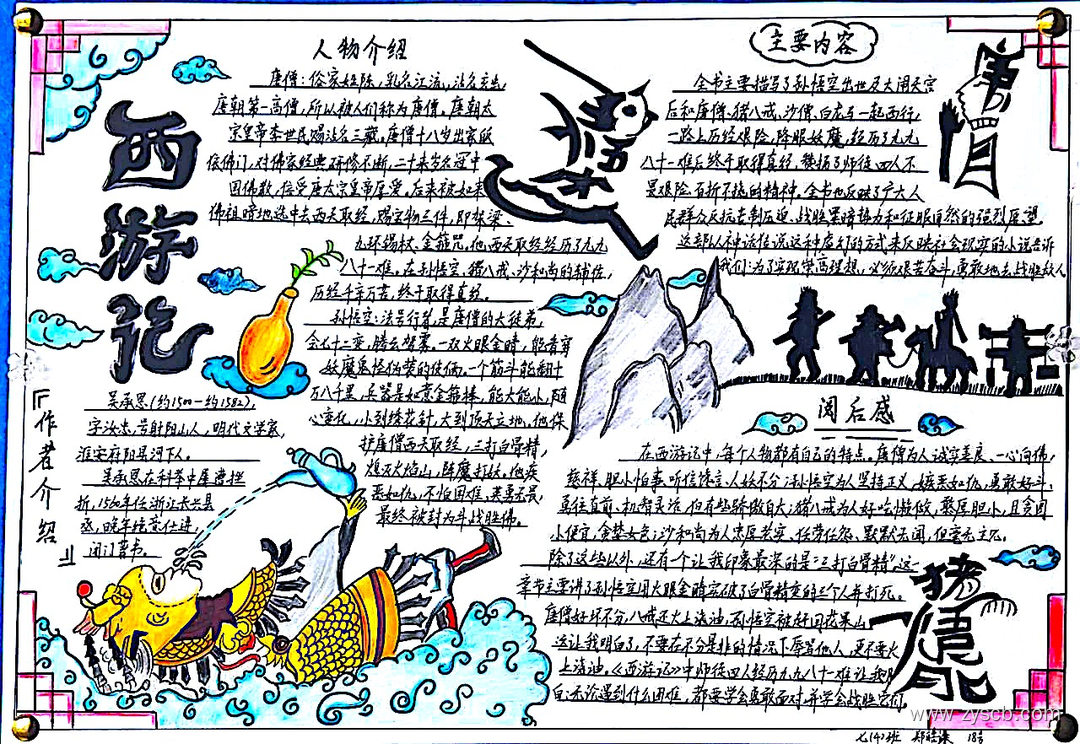 西游记
人物介绍
唐僧:俗家姓陈,乳名江流,法名玄奘,
唐朝第一高僧,所以被人们称为唐僧。唐朝太
宗皇帝李世民赐法名三藏。唐僧十八岁出家皈
依佛门,对佛家经典研修不断,二十来岁名冠中
国佛教,倍受唐太宗皇帝厚爱,后来被如来
佛祖暗地选中去西天取经,赐宝物三件,即袈裟、
九环锡杖、金箍咒。他西天取经经历了九九
八十一难,在孙悟空、猪八戒、沙和尚的辅佐,
历经千辛万苦,终于取得真经。
孙悟空:法号行者,是唐僧的大徒弟,
会七十二变,腾云驾雾。一双火眼金睛,能看穿
妖魔鬼怪伪装的伎俩,一个筋斗能翻十
万八千里,兵器是如意金箍棒,能大能小,随
心变化,小到绣花针,大到顶天立地。他保
护唐僧西天取经,三打白骨精,
熄灭火焰山,除魔打妖,他疾
恶如仇,不怕困难,英勇无畏,
最终被封为斗战胜佛。
『作者介绍』
吴承恩(约1500-约1582),
字汝忠,号射阳山人,明代文学家,
淮安府阳县河下人。
吴承恩在科举中屡遭挫
折,1560年任浙江长兴县
丞,晚年绝意仕进,
闭门著书。
主要内容
全书主要描写了孙悟空出世及大闹天宫
后和唐僧、猪八戒、沙僧、白龙马一起西行,
一路上历经艰险,降服妖魔,经历了九九
八十一难后终于取得真经,赞扬了师徒四人不
畏艰险百折不挠的精神,全书也反映了广大人
民群众反抗专制压迫、战胜黑暗势力和征服自然的强烈愿望。
这部以神话传说这种虚幻的方式来反映社会现实的小说告诉
我们:为了实现崇高理想,必须艰苦奋斗,勇敢地去战胜敌人
阅后感
在西游记中,每个人物都有自己的特点,唐僧为人诚实善良、一心向佛,
慈祥、胆小怕事,听信谗言、人妖不分;孙悟空为人坚持正义、嫉恶如仇、勇敢好斗、
勇往直前、机智灵活,但有些骄傲自大;猪八戒为人好吃懒做,憨厚胆小,且贪图
小便宜,贪婪女色;沙和尚为人忠厚老实、任劳任怨、默默无闻,但毫无主见。
除了这些以外,还有个让我印象最深的是“三打白骨精”,这一
章节主要讲了孙悟空用火眼金睛实破了白骨精变的三个人并打死。
唐僧好坏不分,八戒还火上浇油,孙悟空被赶回花果山。
这让我明白了,不要在不分是非的情况下辱骂他人,更不要火
上浇油,《西游记》中师徒四人经历九九八十一难让我明
白:无论遇到什么困难,都要学会勇敢面对,并学会战胜它们。
猪悟能
七(4)班 18号
www.zyscb.com